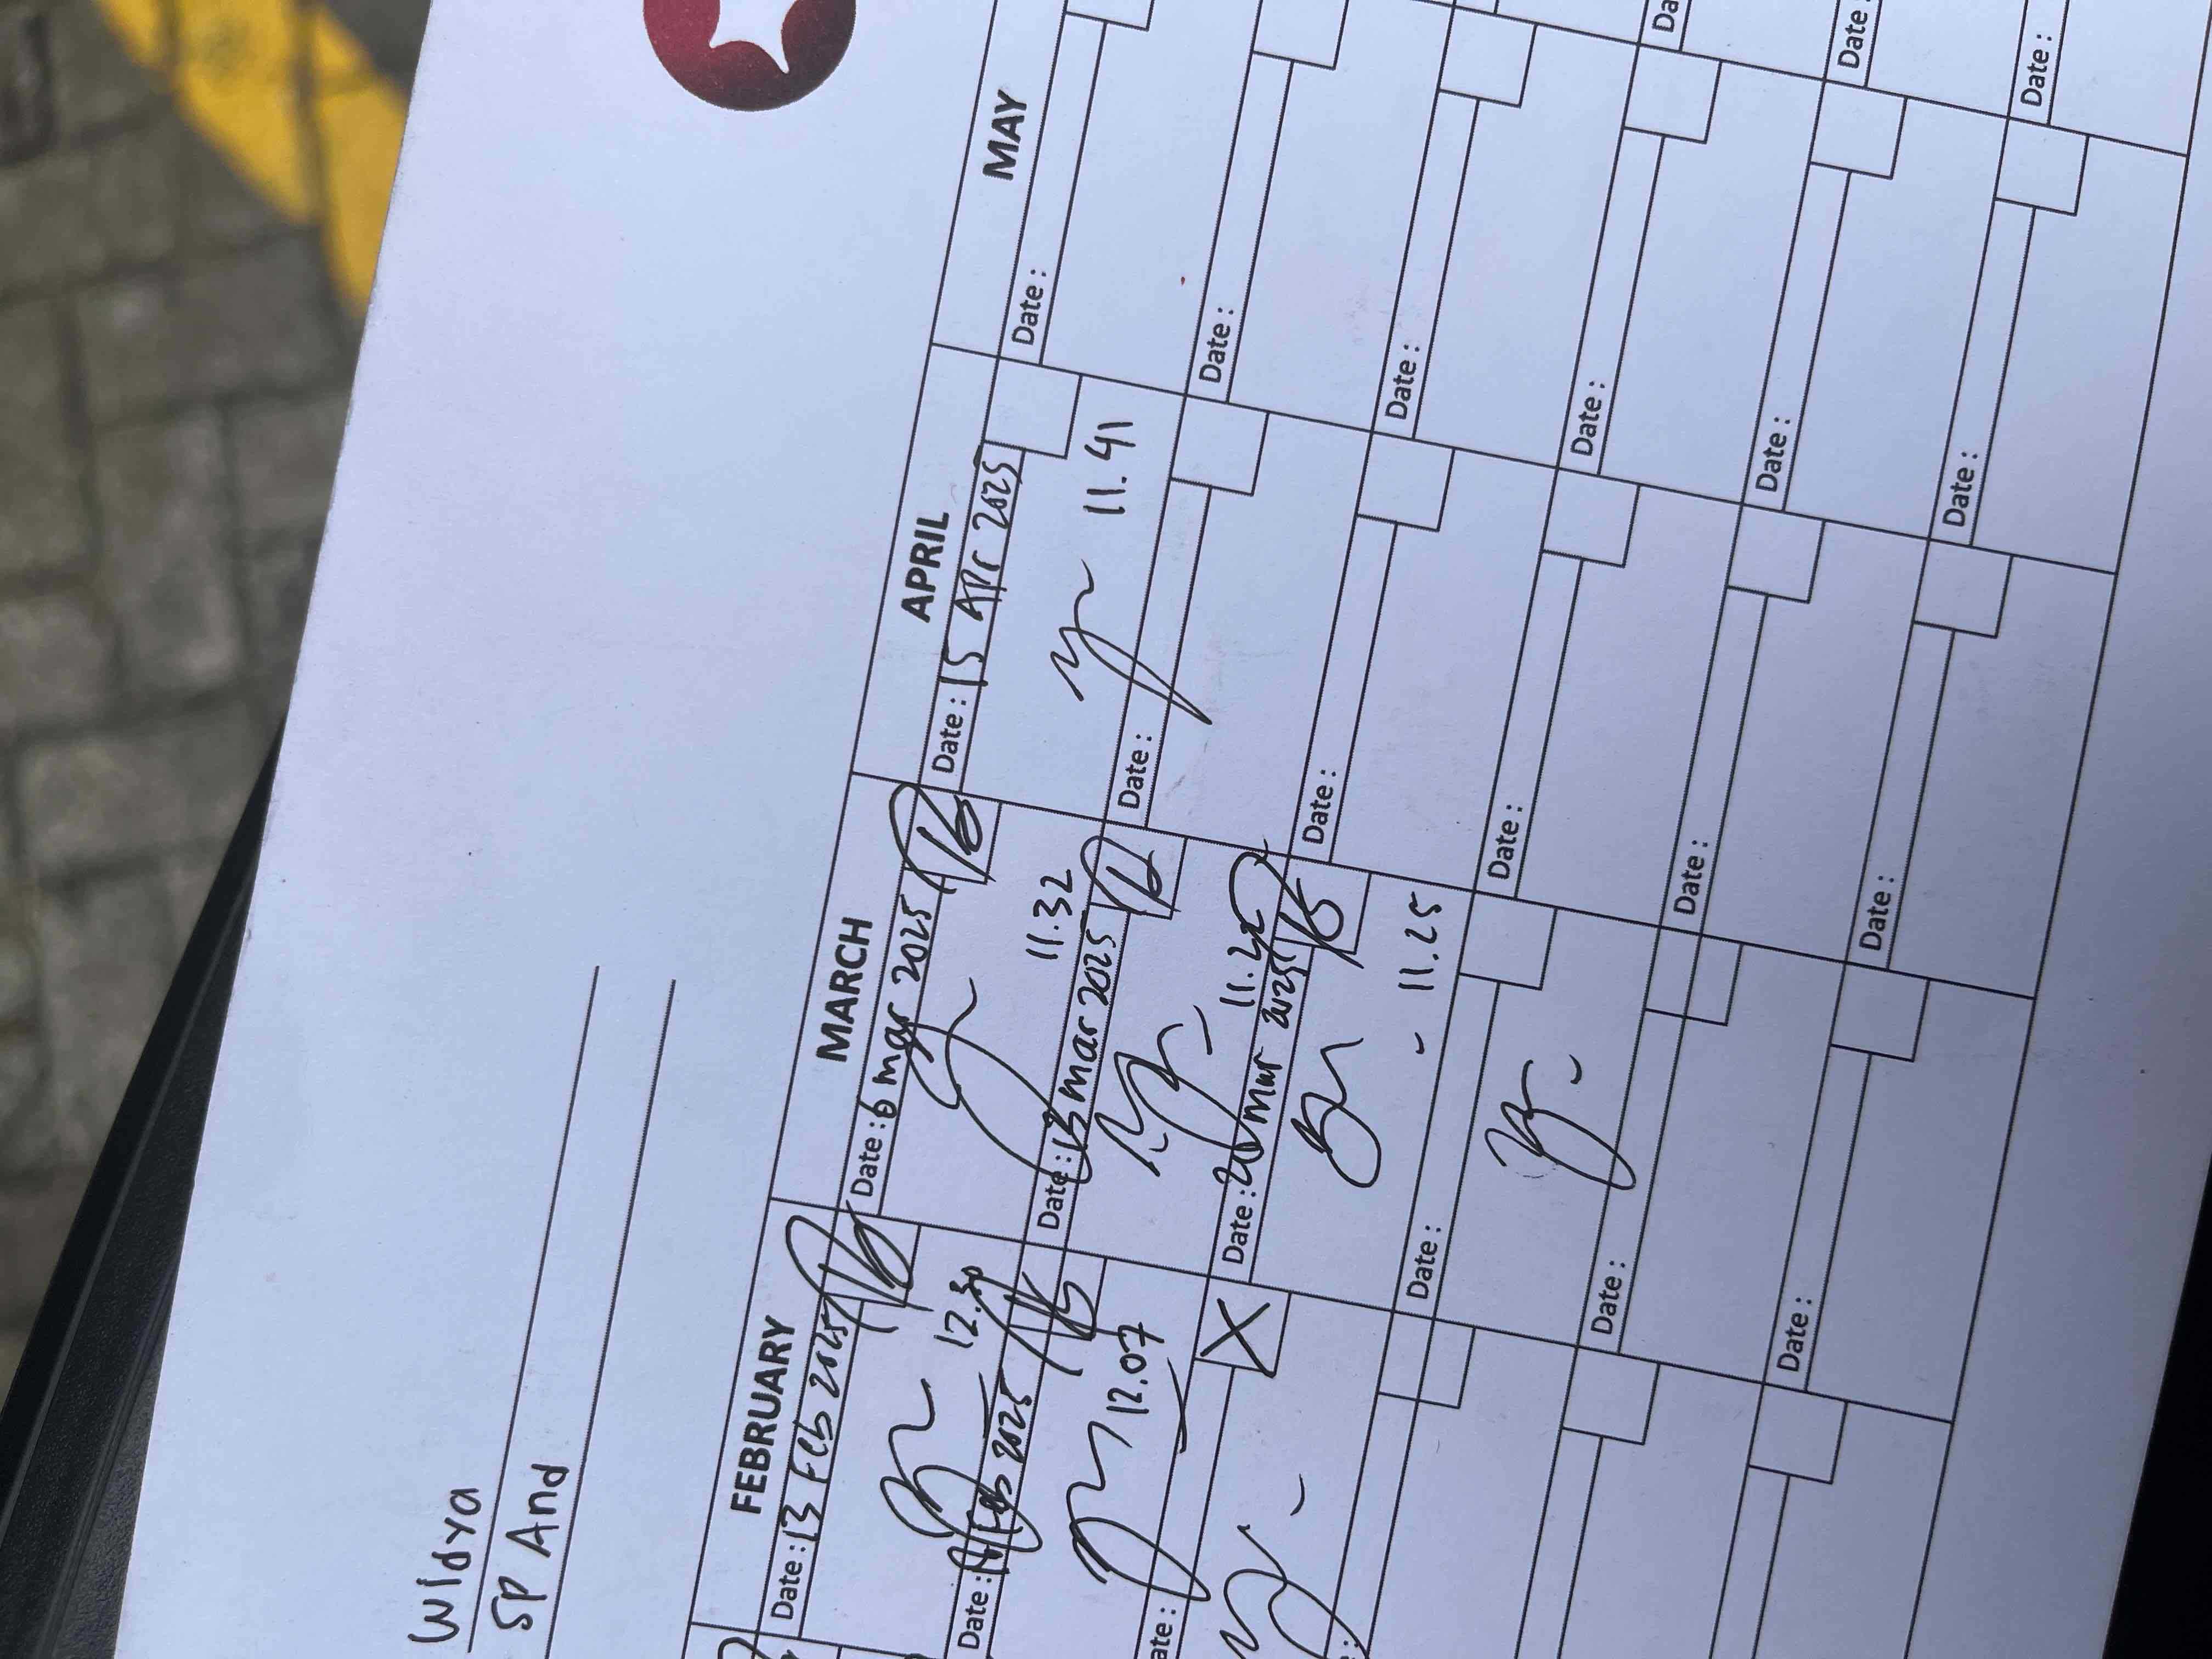 Widya
SP And
FEBRUARY
MARCH
APRIL
MAY
Date : 13 Feb 2025
Date : 6 mar 2025
Date : 15 Apr 2025
Date :
12.30
11.32
11.41
Date : Feb 2025
Date : 13 mar 2025
Date :
Date :
12.07
Date : 20 Mar 2025
Date :
Date :
11.25
Date :
Date :
Date :
Date :
Date :
Date :
Date :
Date :
Date :
Date :
Date :